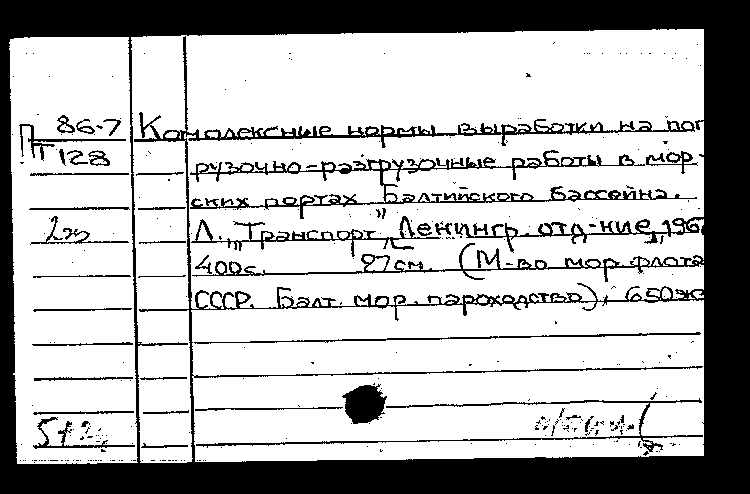 86-7 Комплексные нормы выработки на пог
П Т128 рузочно-разгрузочные работы в мор-
ских портах Балтийского бассейна.
2э Л., "Транспорт", Ленингр. отд-ние, 196
400с. 27см. (М-во мор. флота
СССР. Балт. мор. пароходство), 650эк